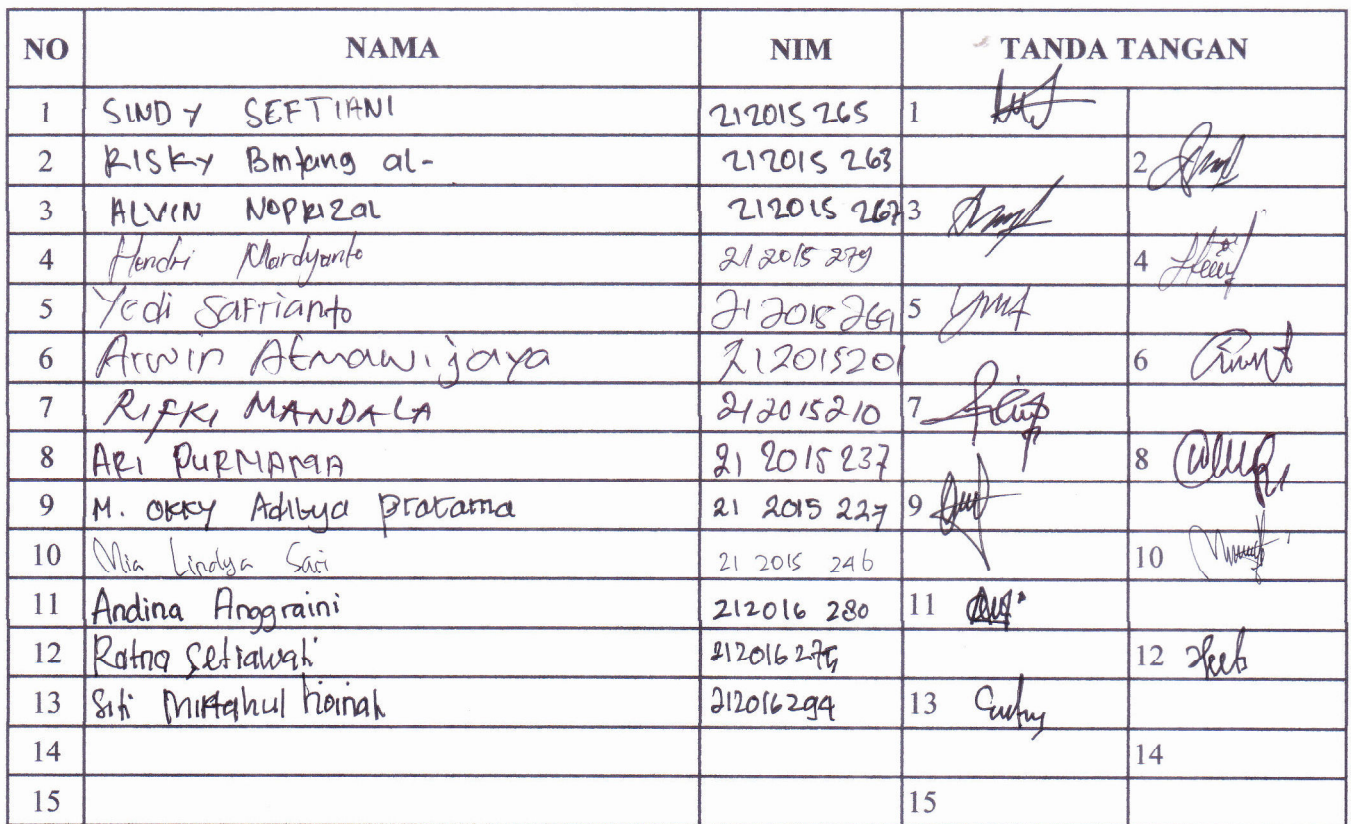 NO NAMA NIM TANDA TANGAN
1 SINDY SEFTIANI 212015 265 1
2 RISKY Bintang al- 212015 263 2
3 ALVIN NOPRIZAL 212015 267 3
4 Hendri Mardyanto 212015 279 4
5 Yedi Safrianto 212015 269 5
6 Arwin Atmawijaya 212015201 6
7 RIFKI MANDALA 212015210 7
8 ARI PURNAMA 21 2015 237 8
9 M. OKKY Aditya Pratama 21 2015 227 9
10 Mia Lindya Sari 21 2015 246 10
11 Andina Anggraini 212016 280 11
12 Ratna Setiawati 12
13 Siti Miftahul 212016294 13
14 14
15 15